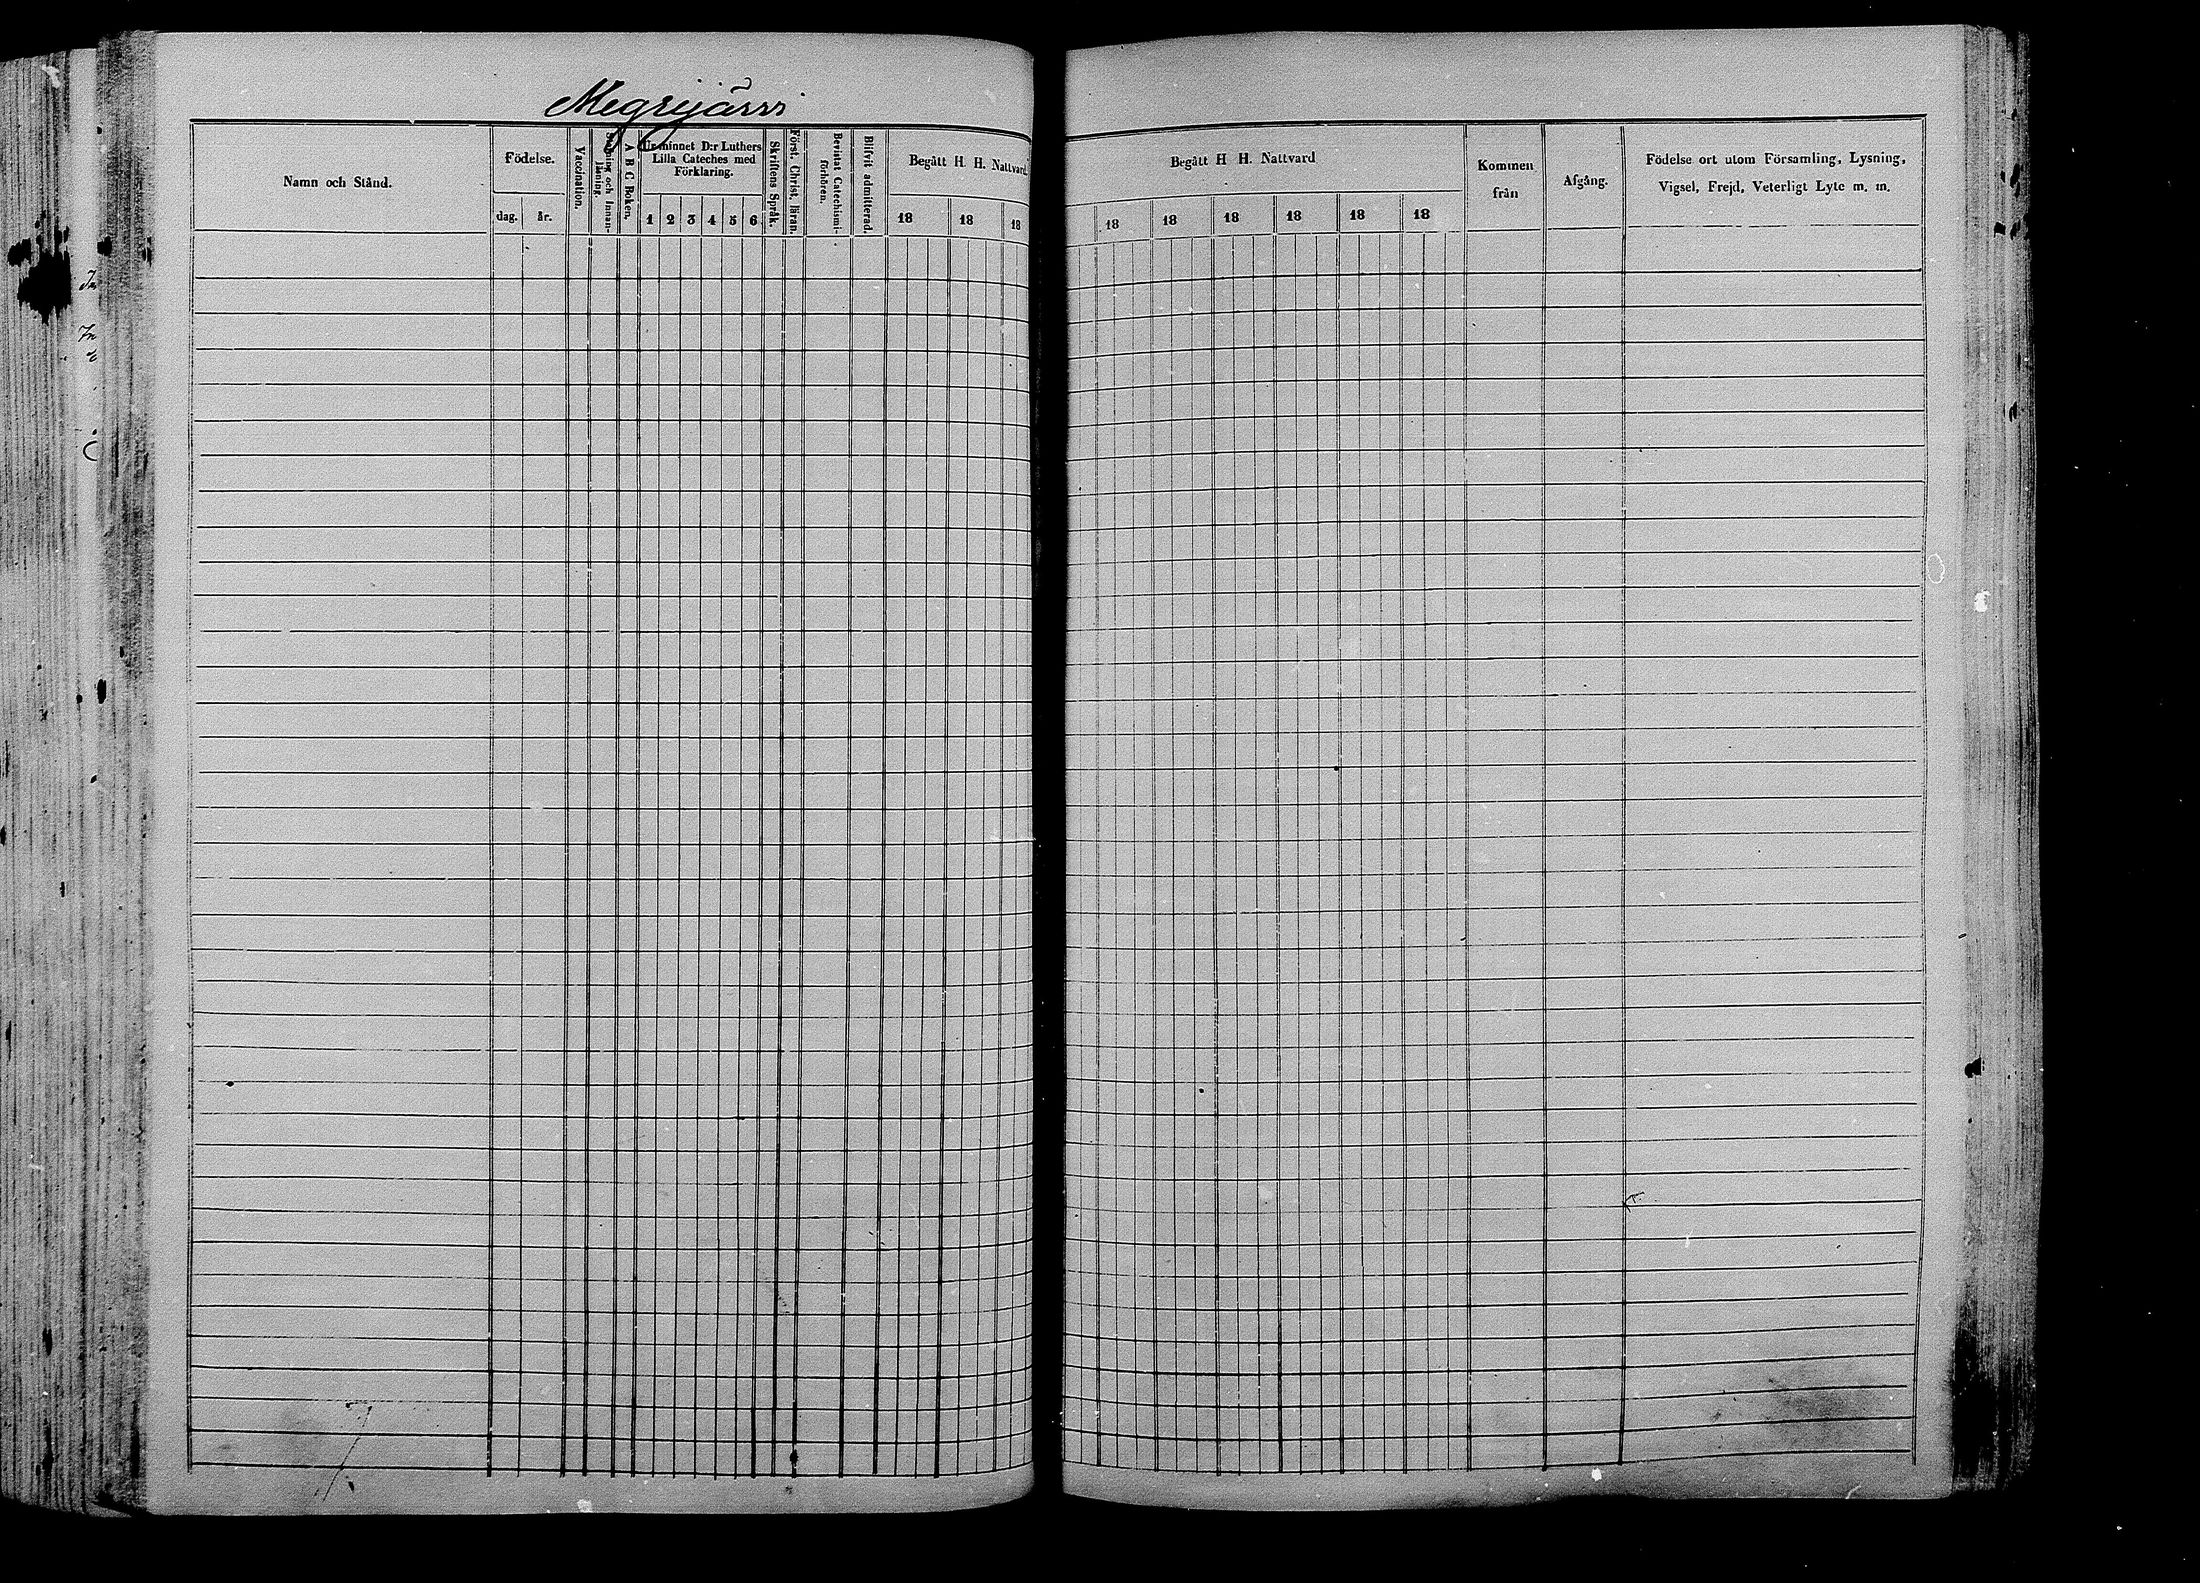 Megrejärvi
Namn och Stånd.
Födelse.
dag. år.
Vaccination.
Stafning och Innan-
läsning.
A B C Boken.
Ur minnet D:r Luthers
Lilla Cateches med
Förklaring.
1 2 3 4 5 6
Skriftens Språk.
Först. Christ. läran.
Bevistat Catechismi-
förhören.
Blifvit admitterad.
Begått H. H. Nattvard.
18 18 18
Begått H H. Nattvard
18 18 18 18 18 18
Kommen
från
Afgång.
Födelse ort utom Församling, Lysning,
Vigsel, Frejd, Veterligt Lyte m. m.